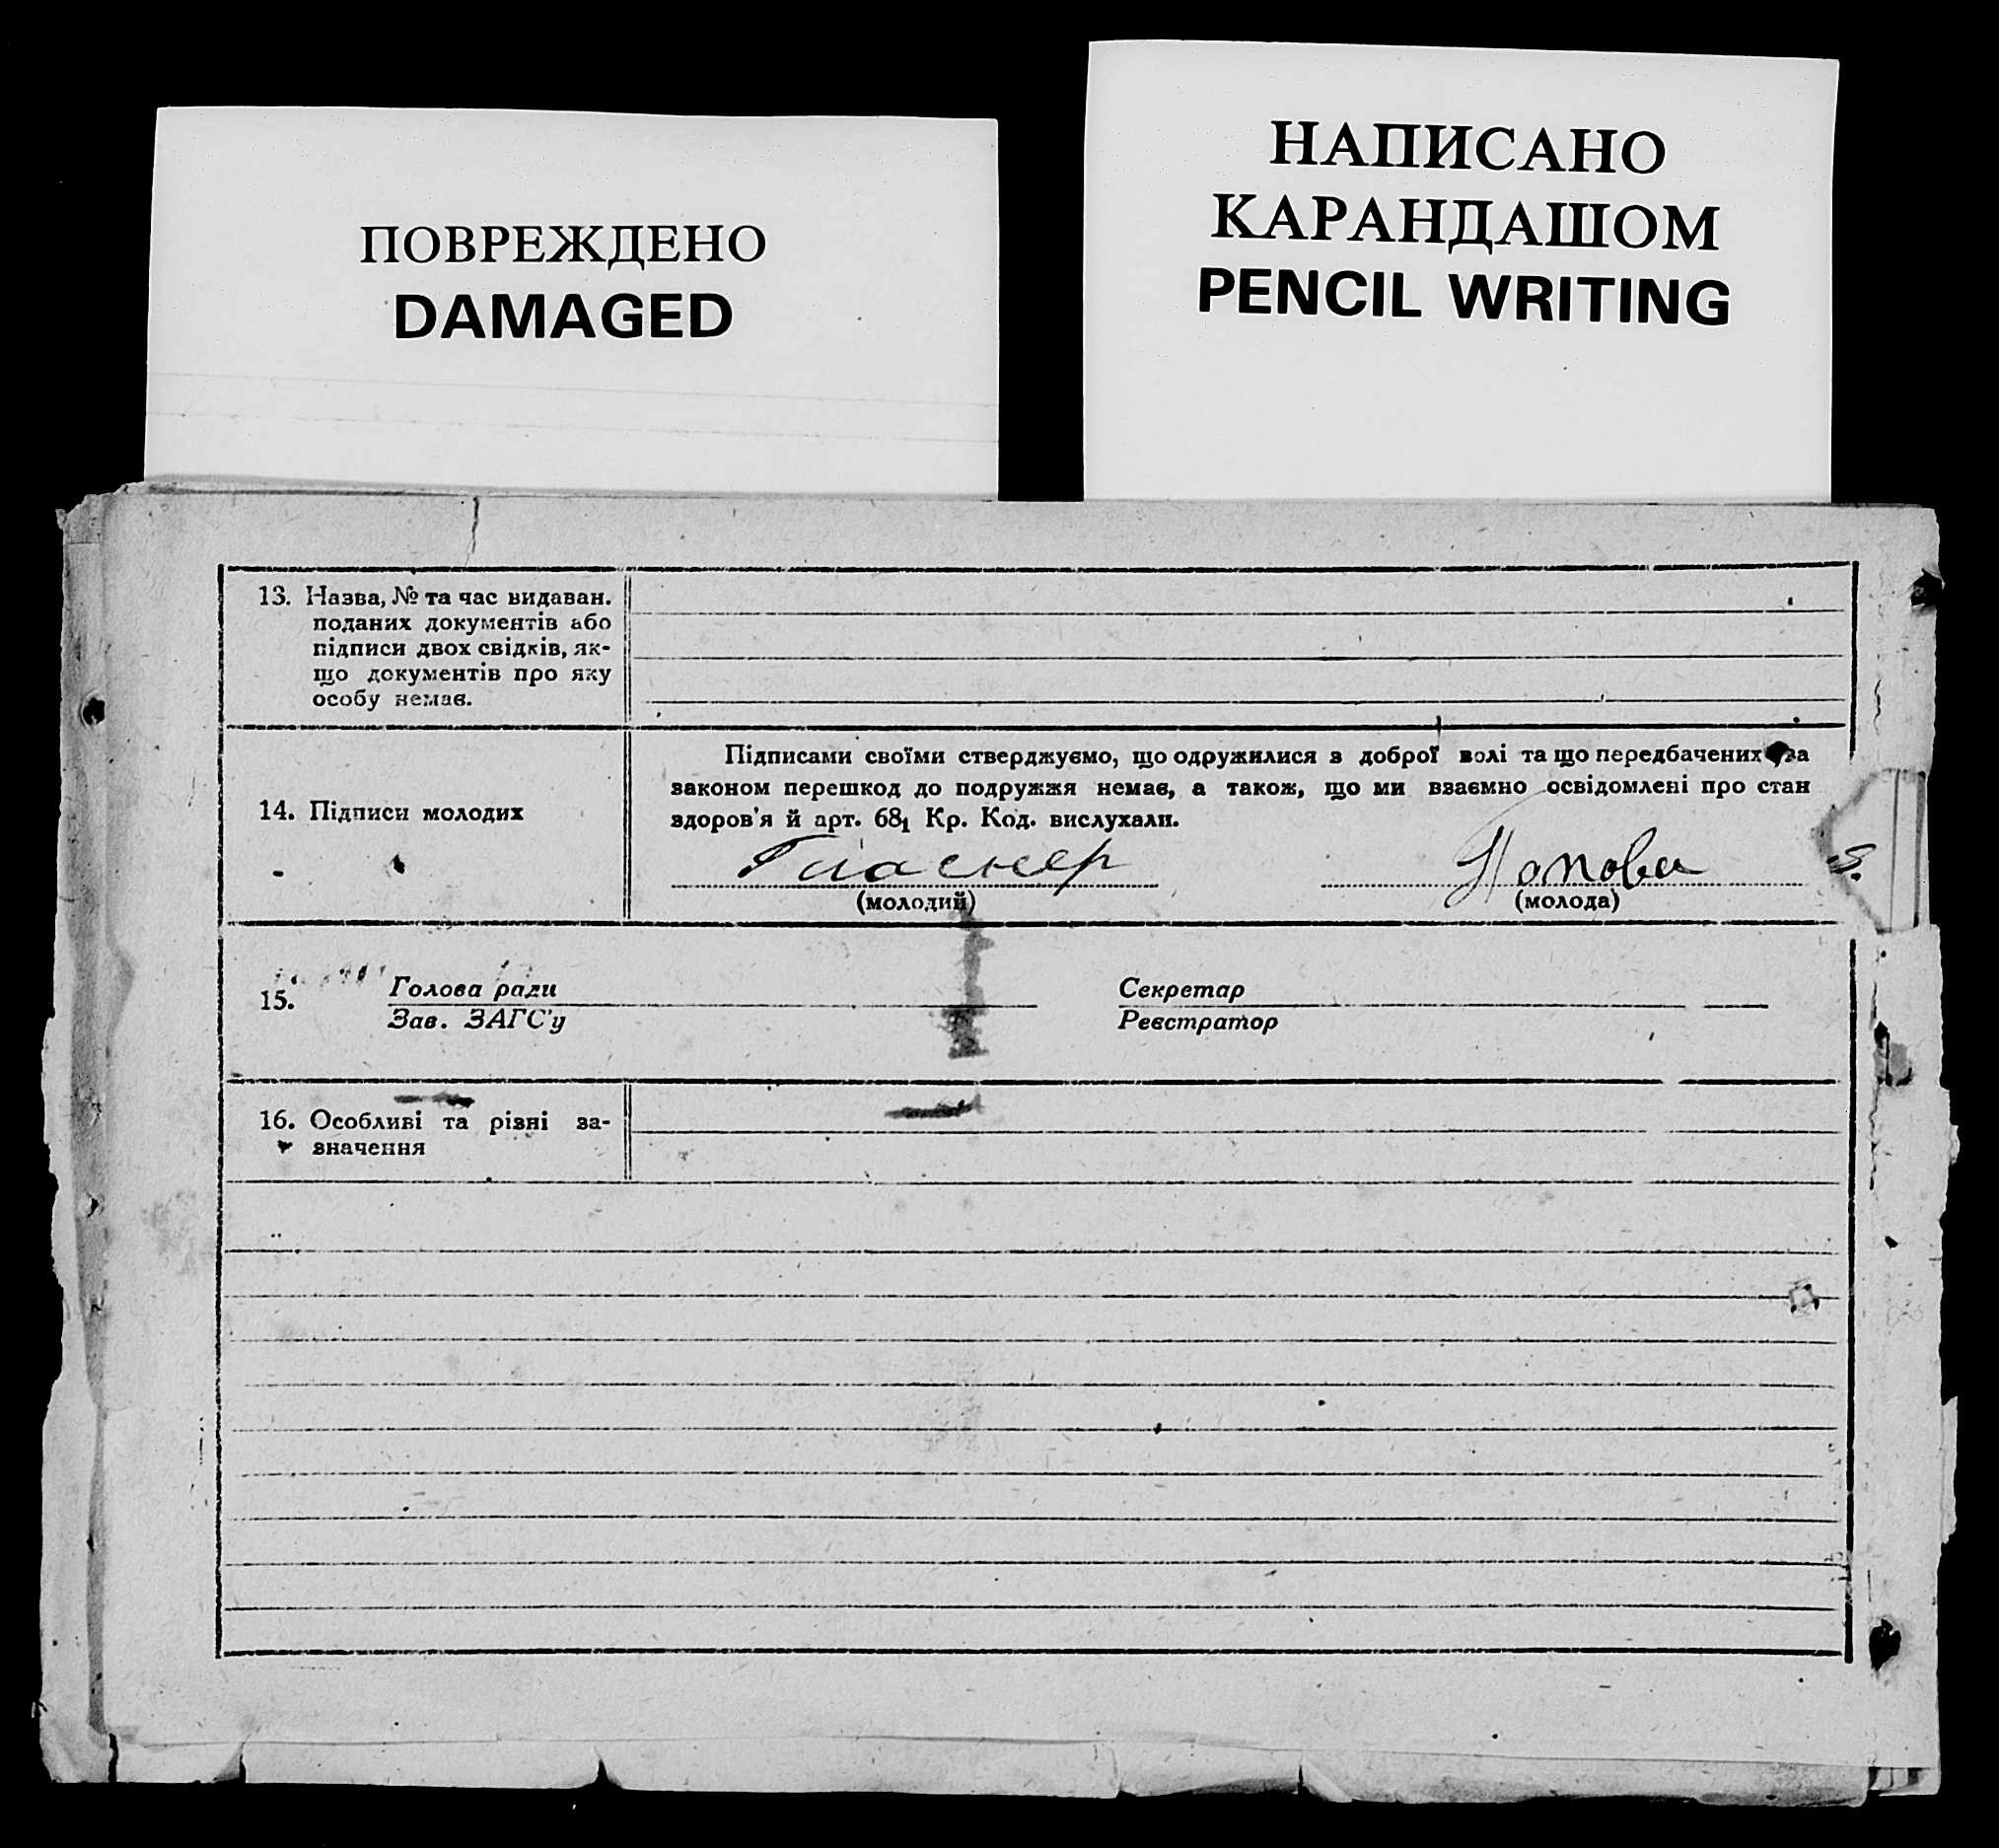 ПОВРЕЖДЕНО
DAMAGED
НАПИСАНО
КАРАНДАШОМ
PENCIL WRITING
13. Назва, № та час видаван.
поданих документів або
підписи двох свідків, як-
що документів про яку
особу немає.
14. Підписи молодих
Підписами своїми стверджуємо, що одружилися з доброї волі та що передбачених за
законом перешкод до подружжя немає, а також, що ми взаємно освідомлені про стан
здоров'я й арт. 68₁ Кр. Код. вислухали.
Гласнер
Попова
(молодий)
(молода)
15.
Голова ради
Зав. ЗАГС'у
Секретар
Реєстратор
16. Особливі та різні за-
значення